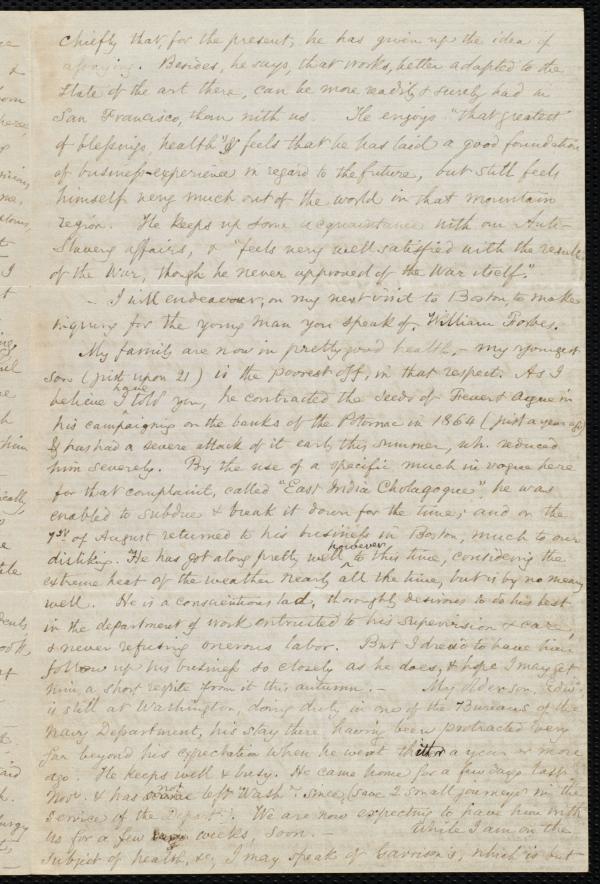 chiefly that, for the present, he has given up the idea of
assaying. Besides, he says, that works, better adapted to the
State of the art there, can be more readily & surely had in
San Francisco, than with us. He enjoys "that greatest
of blessings, health" & feels that he has laid a good foundation
of business-experience in regard to the future, but still feels
himself very much out of the world in that mountain
region. He keeps up some acquaintance with our Anti-
Slavery affairs, & "feels very well satisfied with the result
of the War, though he never approved of the War itself."
- I will endeavor, on my next visit to Boston, to make
inquiry for the young man you speak of, William Forbes.
My family are now in pretty good health, - my youngest
son (just upon 21) is the poorest off, in that respect. As I
believe I have told you, he contracted the seeds of Fever & Ague in
his campaigning on the banks of the Potomac in 1864 (just a year ago)
& has had a severe attack of it early this summer, wh. reduced
him severely. By the use of a specific much in vogue here
for that complaint, called "East India Cholagogue", he was
enabled to subdue & break it down for the time; and on the
7th of August returned to his business in Boston, much to our
disliking. He has got along pretty well, however, to this time, considering the
extreme heat of the weather nearly all the time, but is by no means
well. He is a conscientious lad, thoroughly desirous to do his best
in the department of work entrusted to his supervision & care,
& never refusing onerous labor. But I dread to have him
follow up his business so closely as he does, & hope I may get
him a short respite from it this autumn. - My older son, Edwd
is still at Washington, doing duty in one of the Bureaus of the
Navy Department, his stay there having been protracted very
far beyond his expectation when he went thither a year or more
ago. He keeps well & busy. He came home for a few days last
Novr. & has not left Washn. since, (save 2 small journeys in the
service of the Departt.). We are now expecting to have him with
us for a few weeks, soon. - While I am on the
subject of health, &c, I may speak of Garrison's, which is but